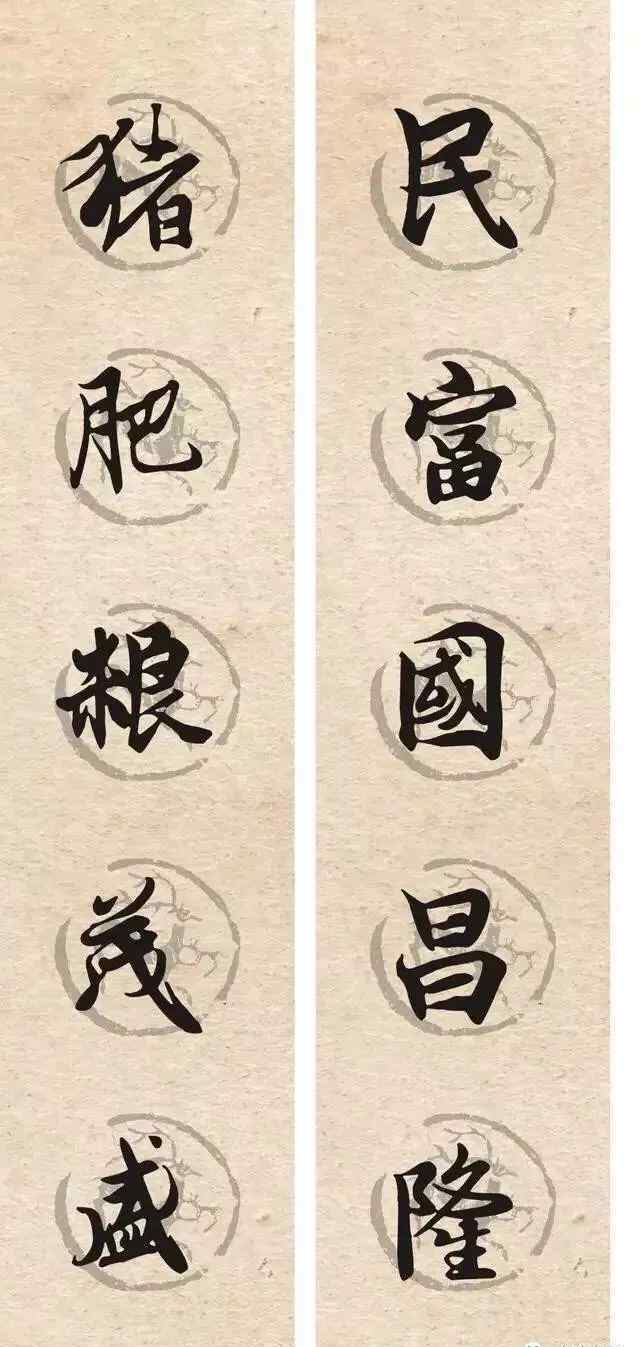 民富國昌隆
猪肥粮茂盛